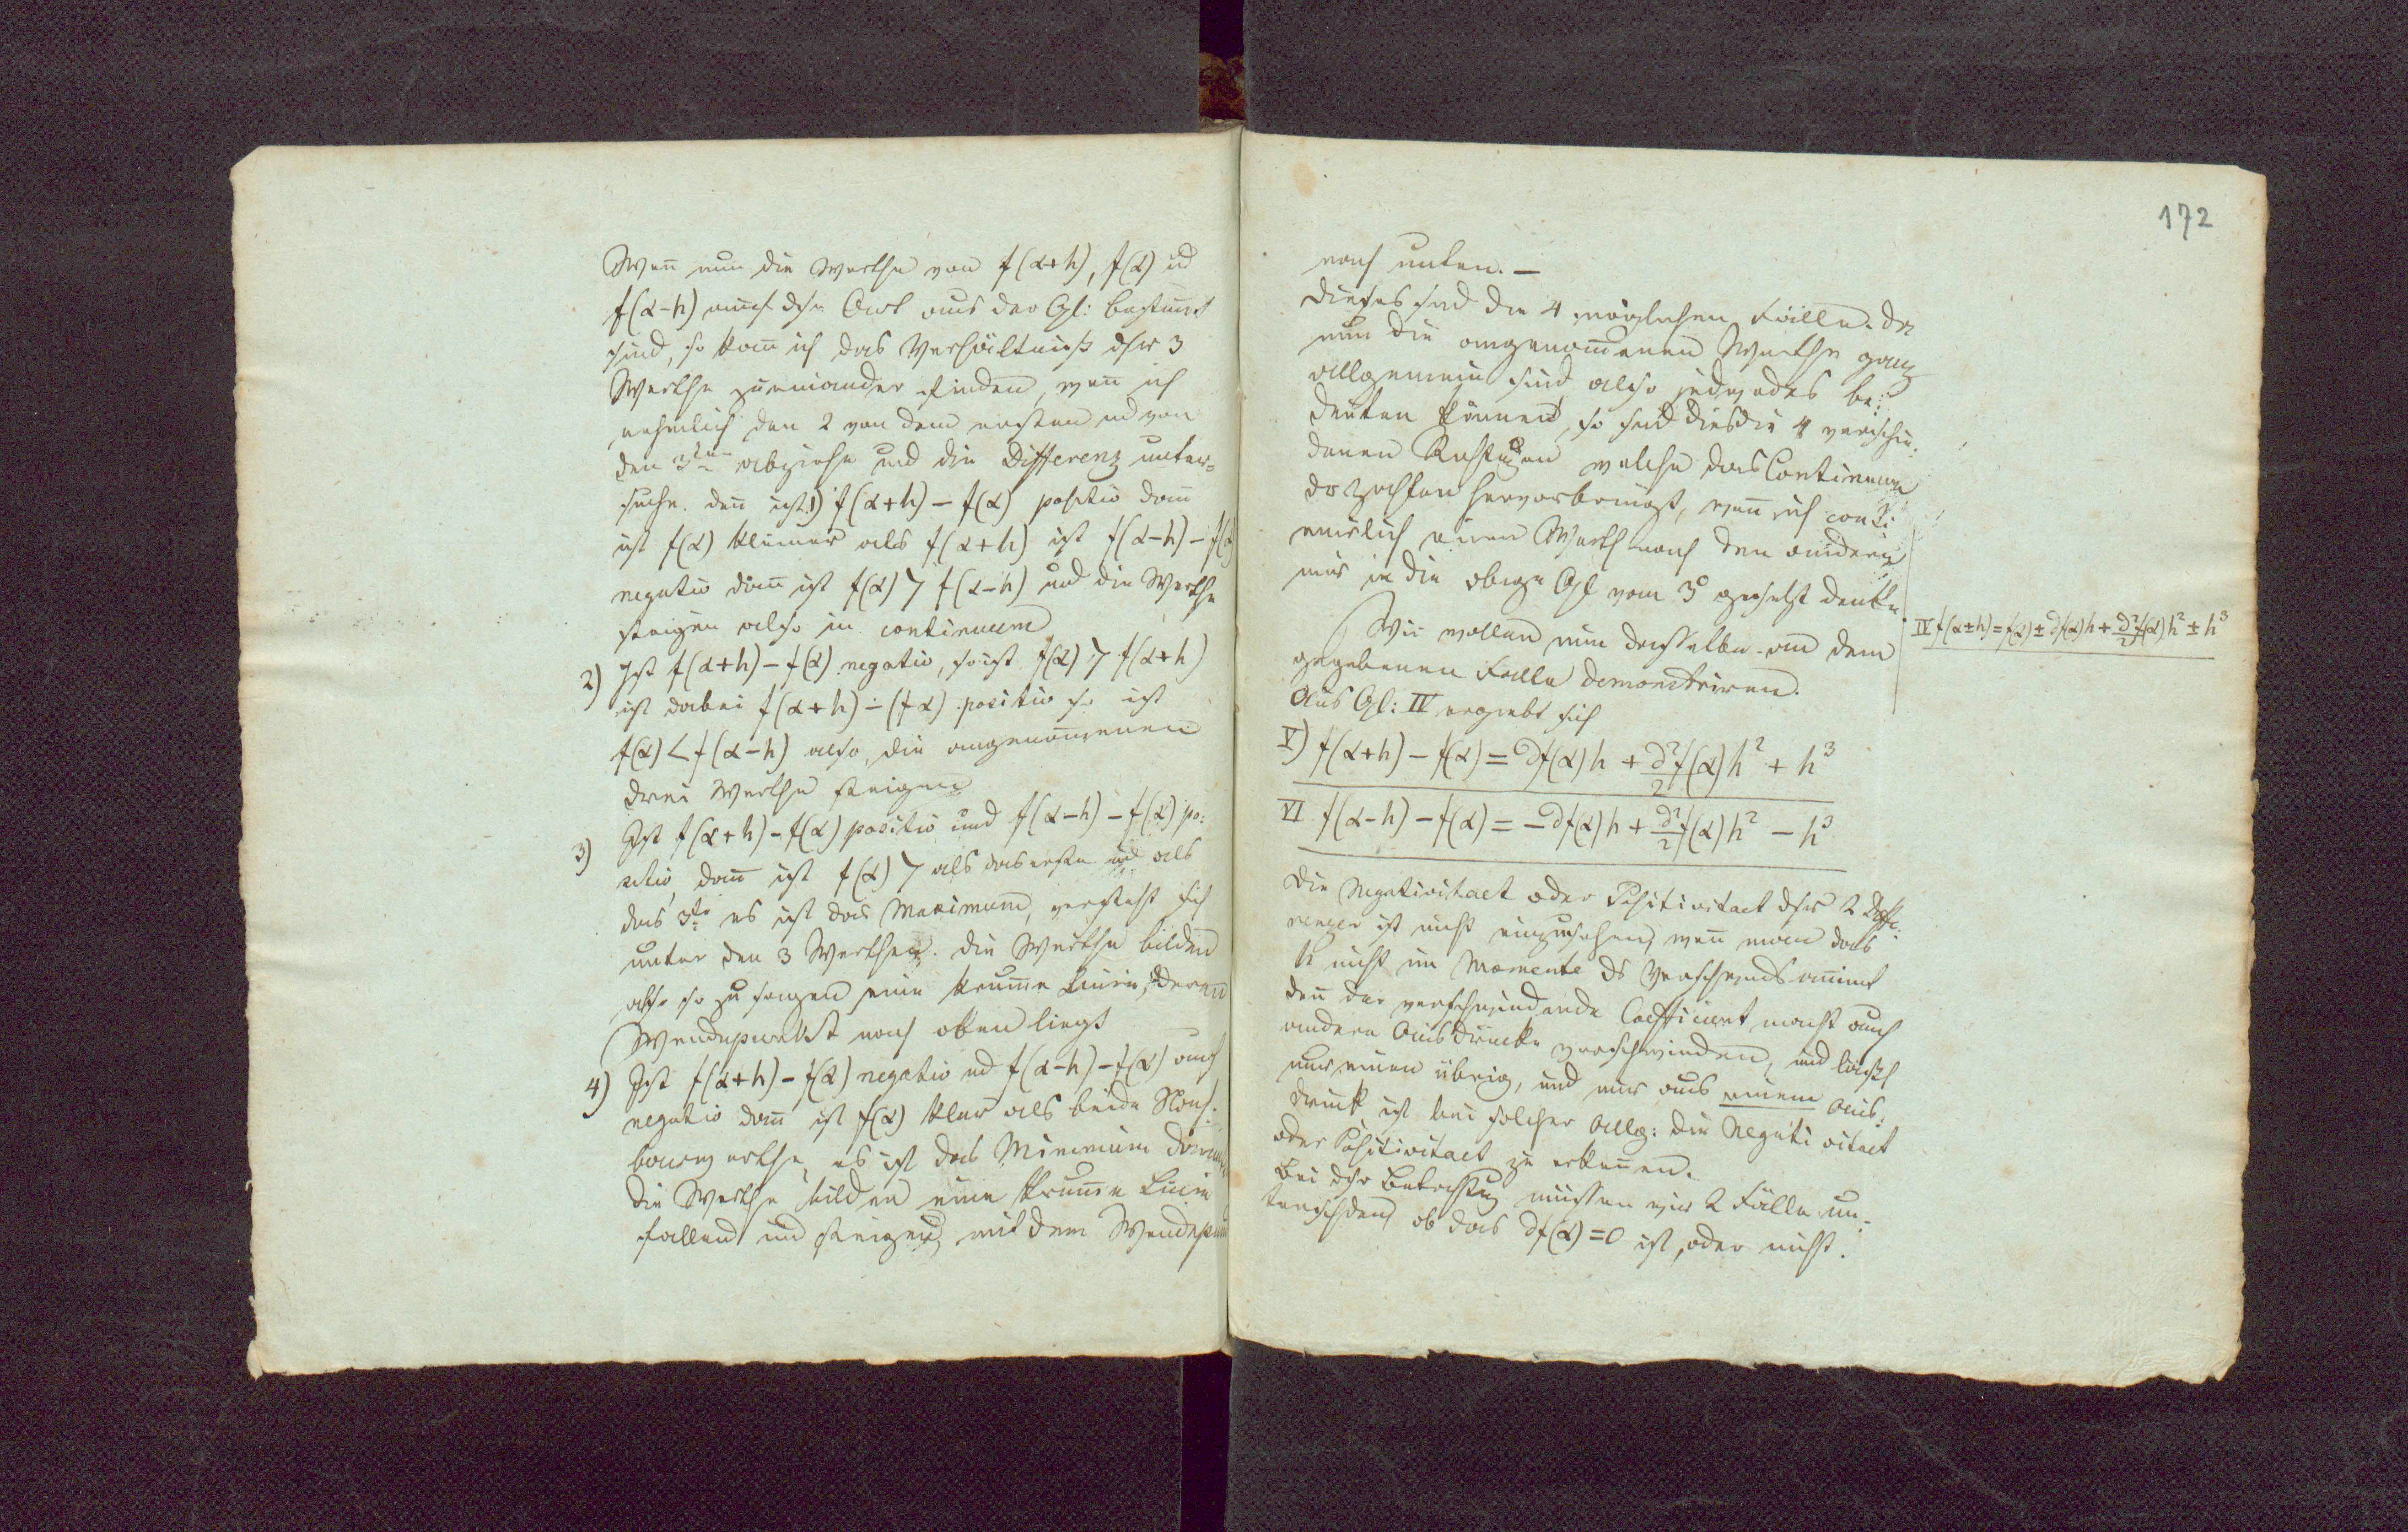 Wen̅ nun die Werthe von f(α+h), f(α) ud
f(α-h) auf dse Art aus der Gl: bestimt
sind, so kan̅ ich das Verhältniß dsr 3
Werthe zueinander finden, wen̅ ich
nehmlich den 2 von dem ersten ud von
den 3ten abziehe und die Differenz unter=
suche. den̅ ist 1) f(α+h) - f(α) positiv dan̅
ist f(α) kleiner als f(α+h) ist f(α-h) - f(α
negativ dan̅ ist f(α) > f(α-h) und die Werthe
steigen also in continuum
2) Ist f(α+h) - f(α) negativ, so ist f(α) > f(α+h)
ist dabei f(α+h) - (fα) positiv so ist
f(α) < f(α-h) also, die angenom̅enen
drei Werthe steigen
3) Ist f(α+h) - f(α) positiv und f(α-h) - f(α) po:
sitiv, dan̅ ist f(α) > als das erste ud als
das 3te es ist das Maximum, versteht sich
unter den 3 Werthen. die Werthe bilden
also so zu sagen eine krum̅e Linie, deren
Wendepunkt nach oben liegt
4) Ist f(α+h) - f(α) negativ ud f(α-h) - f(α) auch
negativ dan̅ ist f(α) klar als beide Nach:
barwerthe, es ist das Minimum
die Werthe bilden eine krum̅e Linie
fallend und steigend mit dem Wendepun
172
nach unten. —
dieses sind die 4 möglichen Fälle. da
nun die angenom̅enen Werthe ganz
allgemein sind also jedwedes be:
deuten können, so sind dies die 4 verschie:
denen welche das Continuum
hervorbringt, wen̅ ich conti
nuirlich einen Werth nach den andern
mir in die obige Gl vom 3° gesetzt denke.
IV f(α±h) = f(α) ± ∂f(α)h + ∂²/2 f(α)h² ± h³
Wir wollen nun dasselbe an dem
gegebenen Falle demonstriren.
Aus Gl: IV ergiebt sich
V) f(α+h) - f(α) = ∂f(α)h + ∂²/2 f(α)h² + h³
VI f(α-h) - f(α) = -∂f(α)h + ∂²/2 f(α)h² - h³
die Negativitaet oder Positivitaet dsr 2 Diffe:
renzen ist nicht einzusehen, wen̅ man das
h nicht im Momente ds Verschwinds an̅imt
den̅ der verschwindende Coefficient macht auch
andere Ausdrücke verschwinden, und läßt
nur einen übrig, und nur aus einem Aus:
druck ist bei solcher Allg: die Negativitaet
oder Positivitaet zu erken̅en.
Bei dsr Betrachtug müssen wir 2 Fälle un:
terscheiden, ob das ∂f(α) = 0 ist, oder nicht.